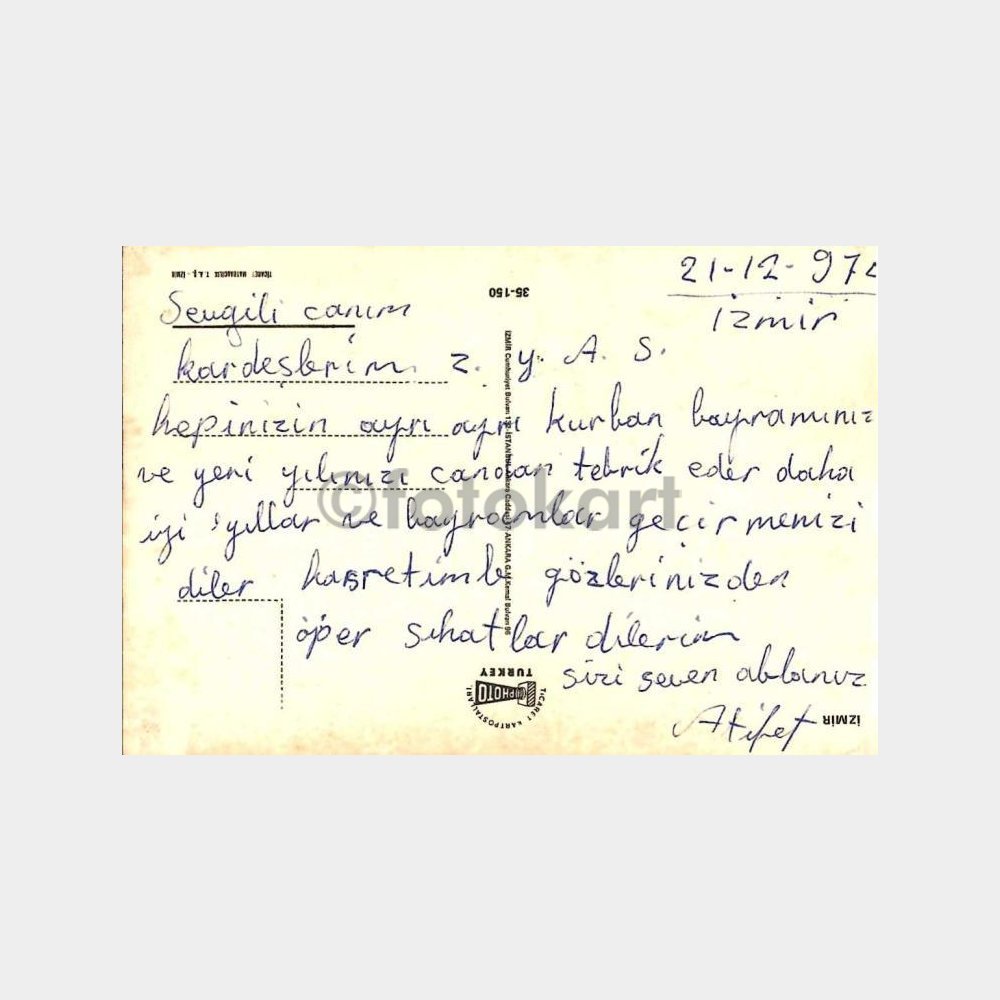 21-12-974
izmir
Sevgili canım
kardeşlerim z. y. A. S.
hepinizin ayrı ayrı kurban bayramınız
ve yeni yılınızı candan tebrik eder daha
iyi yıllar ve bayramlar geçirmenizi
diler hasretimle gözlerinizden
öper sıhatlar dilerim
sizi seven ablanız
Atifet
TİCARET MATBAACILIK T.A.Ş. - İZMİR
35-150
İZMİR Cumhuriyet Bulvarı İSTANBUL Ankara Caddesi ANKARA G.M.Kemal Bulvarı 96
TİCARET KARTPOSTALLARI
PHOTO
TURKEY
İZMİR
©fotokart